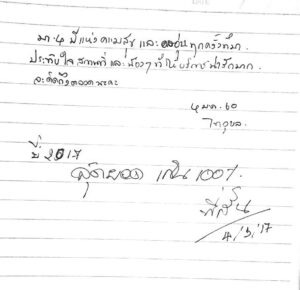 มา ๆ มีแห่งความสุข และอบอุ่นทุกครั้งที่มา
ประทับใจ สถานที่ และน้องๆ ที่ให้บริการน่ารักมาก
จะคิดถึงตลอดนะคะ
4 มค. 60
ปี 2017
สุดยอด เกิน 100%
4/3/17